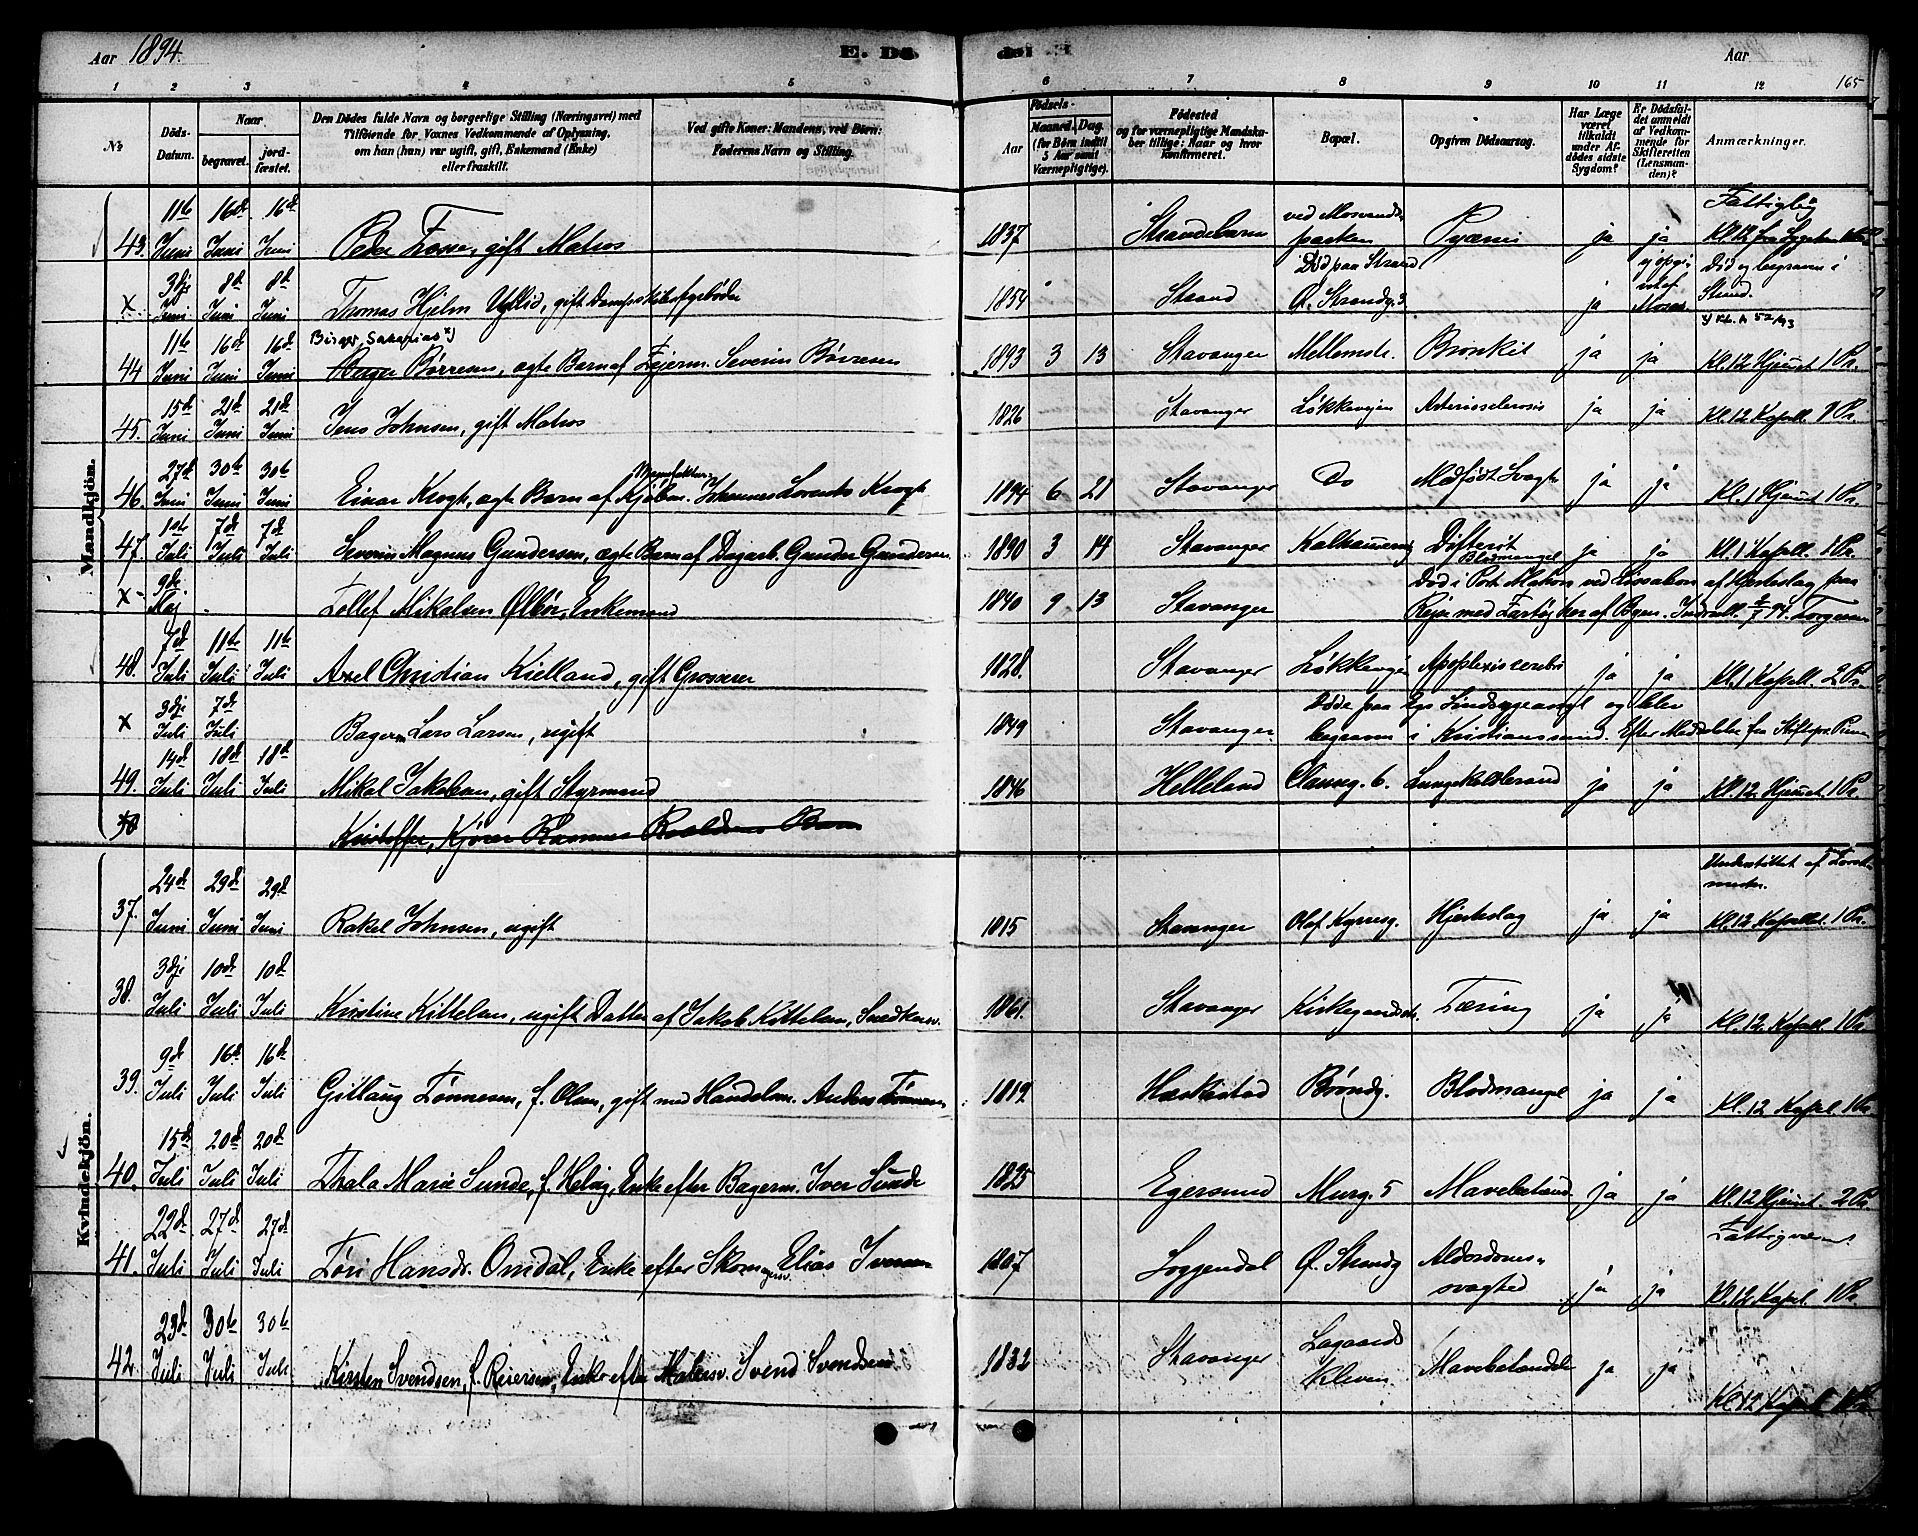 Aar 1894.
E. Dö
Aar
165
1 2 3 4 5 6 7 8 9 10 11 12
No
Döds-Datum.
Naar
begravet.
jordfæstet.
Den Dödes fulde Navn og borgerlige Stilling (Næringsvei) med
Tilföiende for Voxnes Vedkommende af Oplysning,
om han (hun) var ugift, gift, Enkemand (Enke)
eller fraskilt.
Ved gifte Koner: Mandens, ved Börn:
Faderens Navn og Stilling.
Födsels-
Aar
Maaned. Dag.
(for Börn indtil
5 Aar samt
Værnepligtige).
Födested
og for værnepligtige Mandskaber tillige: Naar og hvor
konfirmeret.
Bopæl.
Opgiven Dödsaarsag.
Har Læge været tilkaldt under Afdödes sidste Sygdom?
Er Dödsfaldet anmeldt af Vedkommende for Skifteretten (Lensmanden)?
Anmærkninger.
Mandkjön.
43. 11te Juni 16de Juni 16de Juni Peder Fosse, gift Matros 1837 Strandebarm ved Mosvandsparken Pyæmi ja ja Fattiglig Kl. 12 fra Sygehus
x. 3dje Juni 8de Juni 8de Juni Thomas Hjelm Ullid, gift Dampskibsfyrbøder 1854 Strand Død paa Strand Ø. Strandg. 3 ja ej opgivet af Død og begraven i Strand.
Birger, Sakarias x)
x) Kl. A 52/93
44 11te Juni 16de Juni 16de Juni Børresen, ægte Barn af Fejerm. Severin Børresen 1893 3 13 Stavanger Mellemstr. Bronkit ja ja Kl. 12 Hjemmet 1 Pr.
45. 15de Juni 21de Juni 21de Juni Jens Johnsen, gift Matros 1826 Stavanger Løkkevejen Arteriosclerosis ja ja Kl. 12 Kapell. 1 Pr.
46. 27de Juni 30te Juni 30te Juni Einar Krogh, ægte Barn af Kjøbm. Johannes Lorentz Krogh 1894 6 21 Stavanger Do Medfødt Svagh. ja ja Kl. 1 Hjemmet 1 Pr.
47. 1ste Juli 7de Juli 7de Juli Severin Magnus Gundersen, ægte Barn af Dagarb. Gunder Gundersen 1890 3 14 Stavanger Kalhammerv. Difterit Blodmangel ja ja Kl. 1 Kapell. 1 Pr.
x 9de Maj Tollef Mikalsen Ølbør, Enkemand 1840 9 13 Stavanger Død i Port Mahon ved Lissabon af Hjerteslag paa Rejse med Fartøj her af Byen.
48. 7de Juli 11te Juli 11te Juli Axel Christian Kielland, gift Grosserer 1828. Stavanger Løkkevejen Apoplexia cerebri ja ja Kl. 1 Kapell. 2 Pr.
x 3dje Juli 7de Juli Bagerm. Lars Larsen, ugift 1849 Stavanger. Døde paa Egs Sindssygeasyl og blev begraven i Kristianssand. Efter Meddelelse fra Stiftspr.
49. 14de Juli 18de Juli 18de Juli Mikal Jakobsen, gift Styrmand 1846 Helleland Clausg. 6. Lungekoldbrand ja ja Kl. 12. Hjemmet. 1 Pr.
50 Kristoffer, Kjører Rasmus Roaldsens Barn
Kvindekjön.
37. 24de Juni 29de Juni 29de Juni Rakel Johnsen, ugift 1815 Stavanger Olaf Kyrresg. Hjerteslag ja ja Understøttet af Kl. 12 Kapellet. 1 Pr.
38. 3dje Juli 10de Juli 10de Juli Kirstine Kittelsen, ugift Datter af Jakob Kittelsen, Snedkersv. 1861. Stavanger Kirkegaardstr. Tæring ja ja Kl. 12. Kapell. 1 Pr.
39. 9de Juli 16de Juli 16de Juli Gitlaug Tønnesen, f. Olsen, gift med Handelsm. Anders Tønnesen 1819. Haskestad Brøndg. Blodmangel ja ja Kl. 12 Kapel. 1 Pr.
40. 15de Juli 20de Juli 20de Juli Thala Marie Sunde, f. Helvig, Enke efter Bagerm. Iver Sunde 1825 Egersund Murg. 5 Mavebetænd ja ja Kl. 12 Hjemmet. 2 Pr.
41. 22de Juli 27de Juli 27de Juli Tøri Hansdr. Omdal, Enke efter Skomagersv. Elias Iversen 1807 Soggendal Ø. Strandg Alderdomssvaghed ja ja Fattigvæsenet. Kl. 12 Kapel. 1 Pr.
42. 23de Juli 30te Juli 30te Juli Kirsten Svendsen, f. Reiersen, Enke efter Malersv. Svend Svendsen 1832 Stavanger Lagaards Kleven Mavebetændelse ja ja Kl. 12 Kapel. 1 Pr.